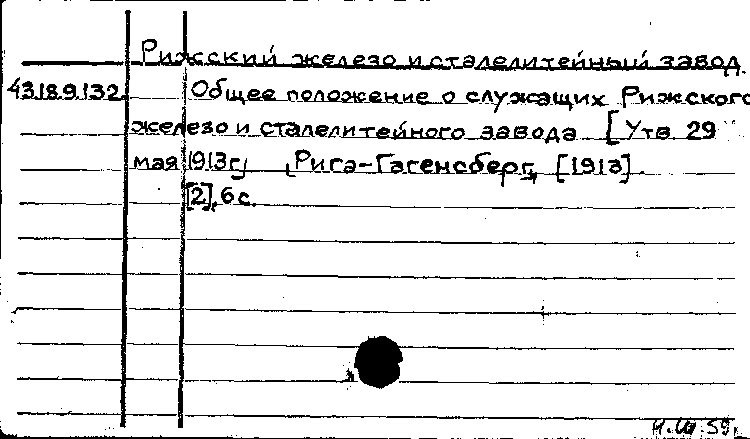 Рижский железо и сталелитейный завод.
43189132 Общее положение о служащих Рижского
железо и сталелитейного завода [Утв. 29
мая 1913г] Рига-Гагенсберг, [1913].
[2], 6 с.
59г.